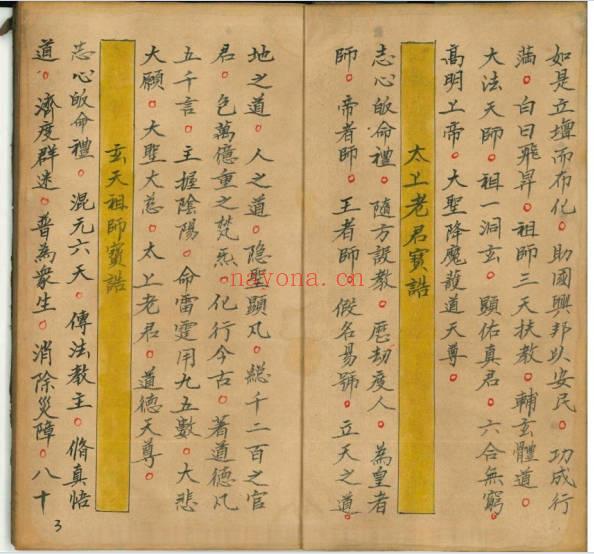 如是立壇而布化。助國興邦以安民。功成行
滿。白日飛昇。祖師三天扶教。輔玄體道。
大法天師。祖一洞玄。顯佑真君。六合無窮。
高明上帝。大聖降魔護道天尊。
太上老君寶誥
志心皈命禮。隨方設教。歷劫度人。為皇者
師。帝者師。王者師。假名易號。立天之道。
地之道。人之道。隐聖顯凡。總千二百之官
君。包萬億重之梵炁。化行今古。著道德凡
五千言。主握陰陽。命雷霆用九五數。大悲
大願。大聖大慈。太上老君。道德天尊。
玄天祖師寶誥
志心皈命禮。混元六天。傳法教主。脩真悟
道。濟度群迷。普為衆生。消除災障。八十
3
nayona.cn